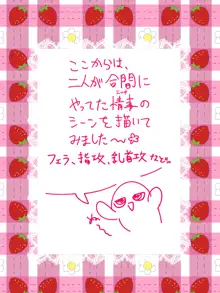 ここからは、
二人が合間に
やってた情事の
シーンを描いて
みました〜
フェラ、指攻、乳首攻など。